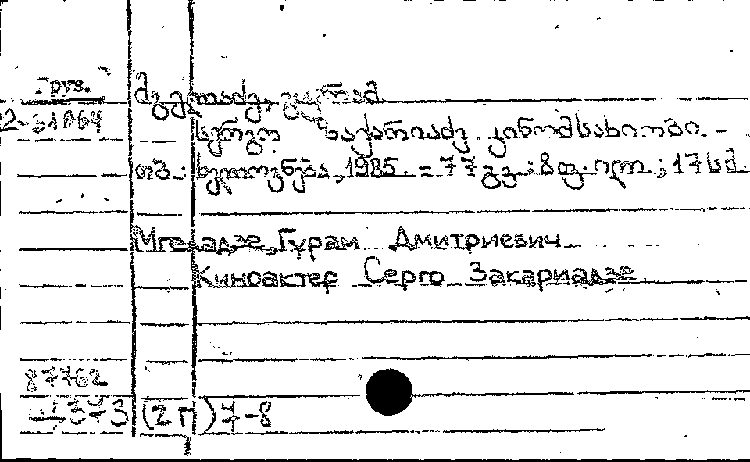 Груз.
მგელაძე, გურამ
2-31064
სერგო ზაქარიაძე. კინომსახიობი. -
თბ.: ხელოვნება, 1985. - 77 გვ.: 8 ფ. ილ.; 17 სმ
Мгеладзе, Гурам Дмитриевич
Киноактер Серго Закариадзе
87762
373 (2 г) 7-8